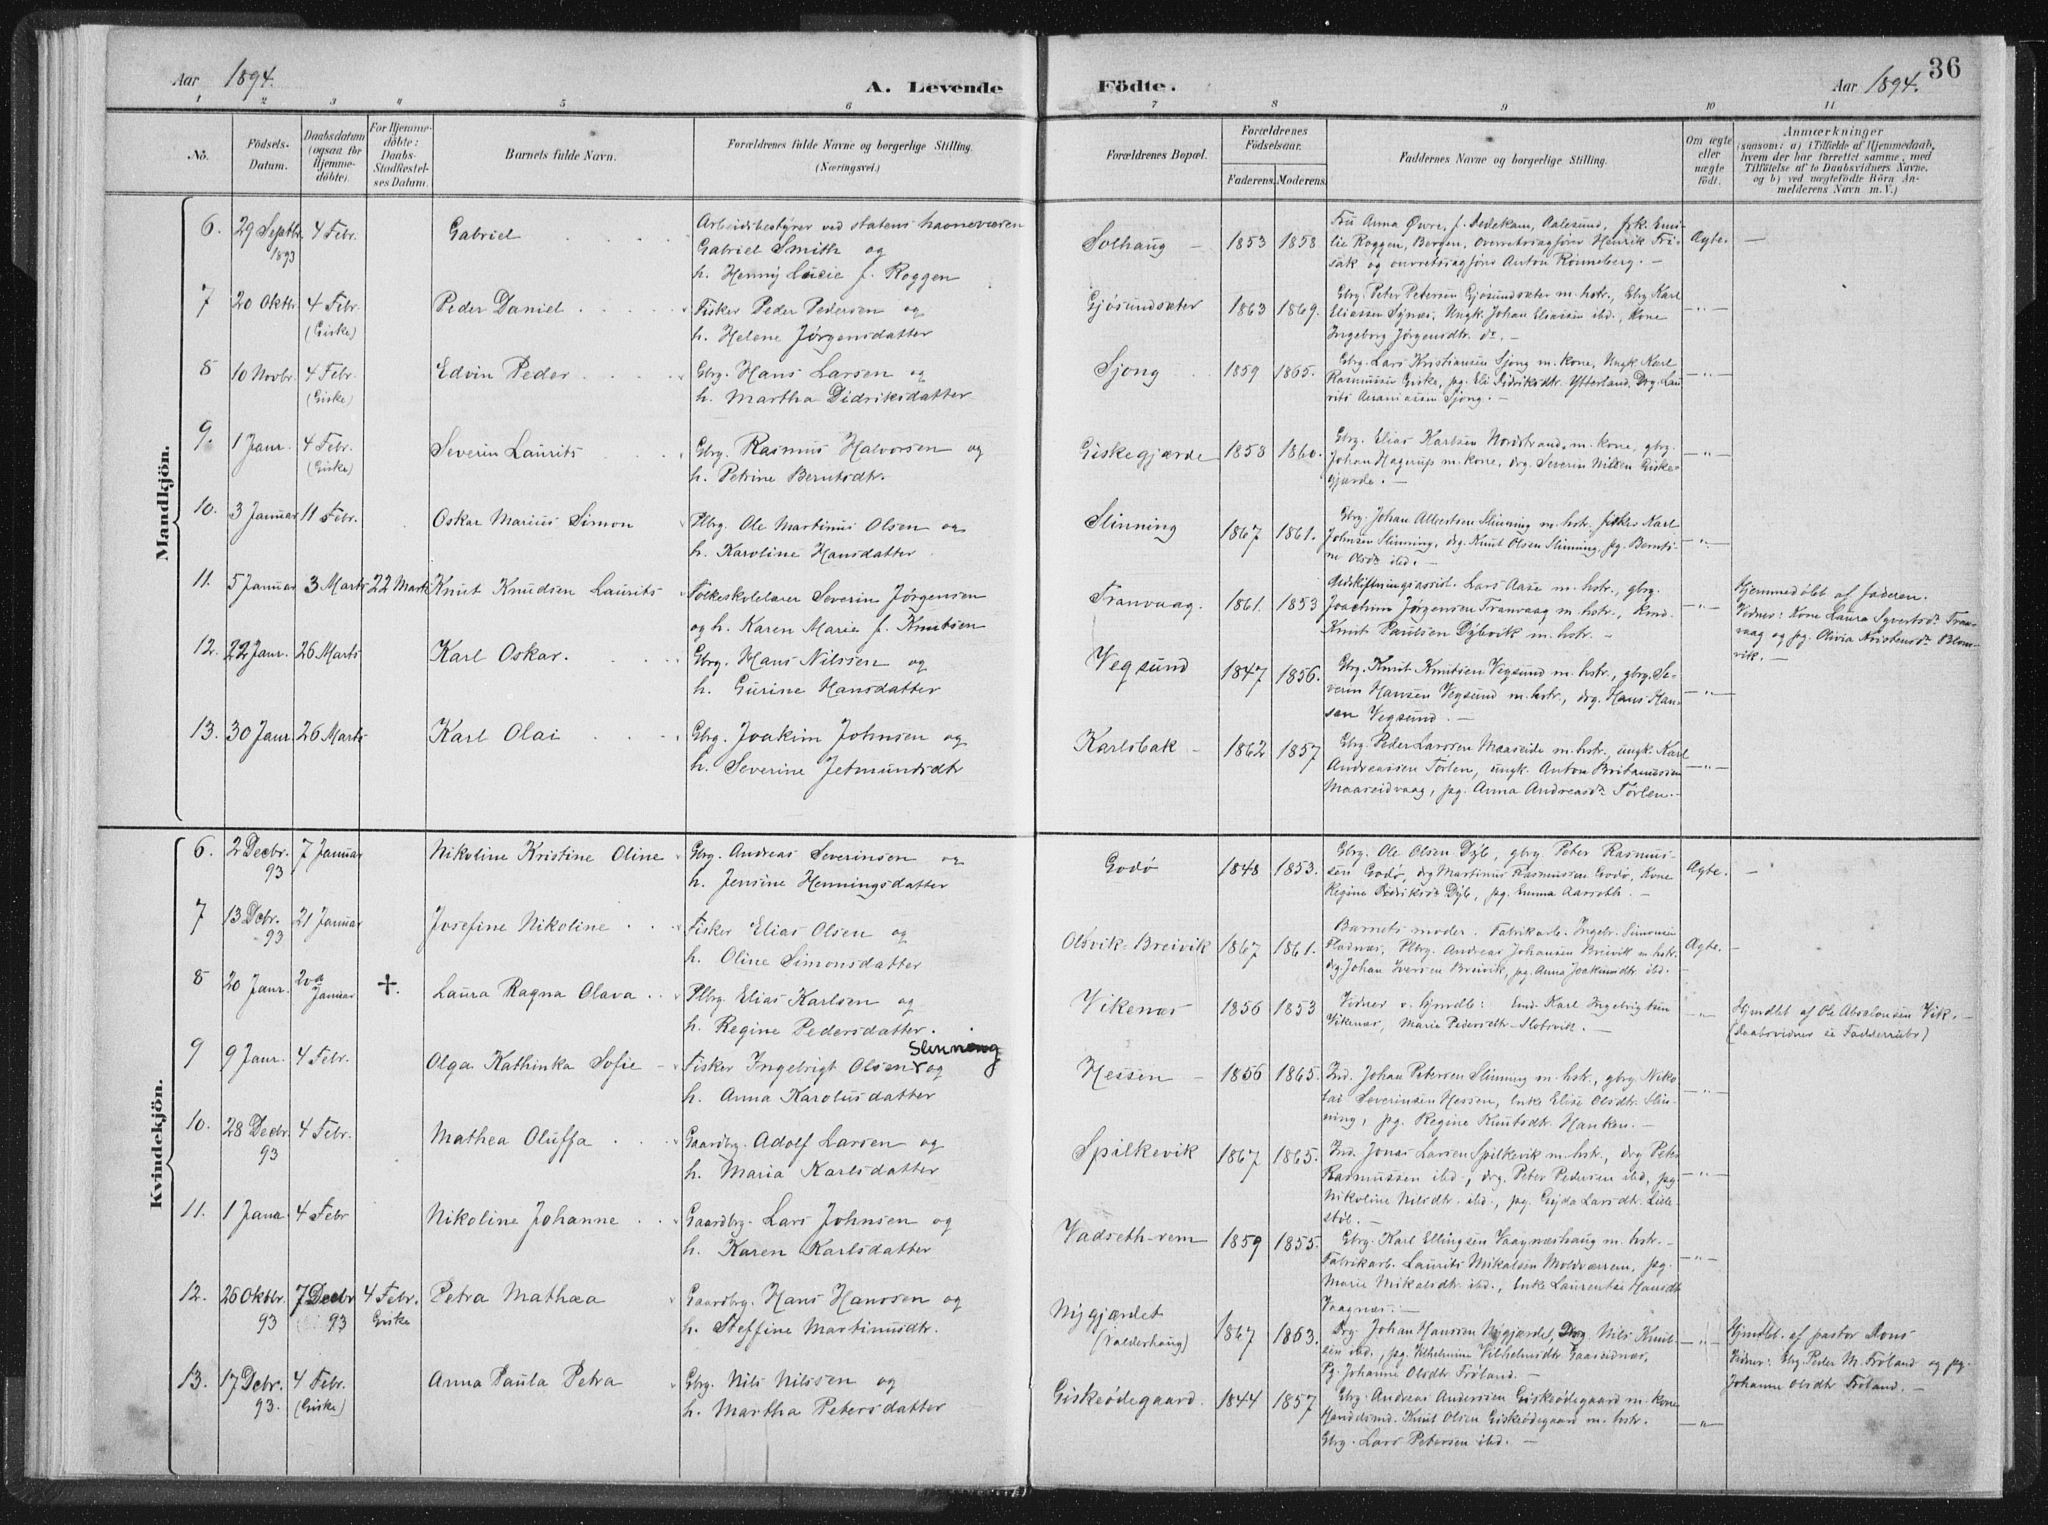 36
Aar 1894.
A. Levende
Födte.
Aar 1894.
1 2 3 4 5 6 7 8 9 10 11
No.
Födsels-
Datum.
Daabsdatum
(ogsaa for
Hjemme-
döbte).
For Hjemme-
döbte:
Daabs-
Stadfæstel-
ses Datum.
Barnets fulde Navn.
Forældrenes fulde Navne og borgerlige Stilling.
(Næringsvei.)
Forældrenes Bopæl.
Forældrenes
Födselsaar.
Faderens. Moderens.
Faddernes Navne og borgerlige Stilling.
Om ægte
eller
uægte
födt.
Anmærkninger
(saasom: a) i Tilfælde af Hjemmedaab,
hvem der har forrettet samme, med
Tilföielse af to Daabsvidners Navne,
og b) ved uægtefödte Börn An-
melderens Navn m. V.)
Mandkjön.
6. 29 Septbr. 1893 4 Febr. Gabriel
Arbeidsbestyrer ved statens havnevæsen
Gabriel Smith og
h. Henny Lucie f. Roggen
Solhaug 1853 1858
Fru Anna Øvre, f. Dedekam, Aalesund, frk. Emi-
lie Roggen, Bergen, Overretssagfører Henrik Fri-
sak og overretssagfører Anton Rønneberg. —
Ægte. —
7 20 Oktbr. 4 Febr. (Giske) Peder Daniel
Fisker Peder Pedersen og
h. Helene Jørgensdatter
Gjøsundsæter 1863 1869.
Gbrg. Peter Petersen Gjøsundsæter m. hstr., Gbrg. Karl
Eliassen Synæs, Ungk. Johan Eliassen ibd., Kone
Ingeborg Jørgensdtr. do. —
—"—
8 10 Novbr. 4 Febr. (Giske) Edvin Peder
Gbrg. Hans Larsen og
h. Martha Didriksdatter
Sjong 1859 1865.
Gbrg. Lars Kristiansen Sjong m. kone, Ungk. Karl
Rasmussen Giske, pg. Eli Didriksdtr. Ytterland, Drg. Lau-
rits Ananiassen Sjong. —
—"—
9. 1 Janr. 4 Febr. (Giske) Severin Laurits
Gbrg. Rasmus Halvorsen og
h. Petrine Berntsdtr.
Giskegjærde 1858 1860.
Gbrg. Elias Karlsen Nordstrand m. kone, gbrg.
Johan Hagerup m. kone, drg. Severin Nilsen Giske-
gjærde. —
—"—
10. 3 Januar 11 Febr. Oskar Marius Simon
Plbrg. Ole Martinus Olsen og
h. Karoline Hansdatter
Slinning 1867 1861.
Gbrg. Johan Albertsen Slinning m. hstr. fisker Karl
Johnsen Slinning, drg. Knut Olsen Slinning, pg. Bernti-
ne Olsdr. ibd. —
—"—
11. 5 Januar 3 Marts 22 Marts Knut Knudsen Laurits
Folkeskolelærer Severin Jørgensen
og h. Karen Marie f. Knutsen
Tranvaag. 1861. 1853
Udskiftningsassist. Lars Aase m. hstr., gbrg.
Joachim Jørgensen Tranvaag m. hstr.,
Knut Paulsen Dybvik m. hstr. —
—"—
Hjemmedöbt af faderen.
Vidner: Kone Laura Syvertsdr. Tran-
vaag og pg. Olivia Kristensdr. Blom-
vik. —
12. 22 Janr. 26 Marts Karl Oskar.
Gbrg. Hans Nilssen og
h. Gurine Hansdatter
Vegsund 1847 1856.
Gbrg. Knut Knutsen Vegsund m. hstr., gbrg. Se-
verin Hansen Vegsund m. hstr., drg. Hans Han-
sen Vegsund. —
—"—
13. 30 Janr. 26 Marts Karl Olai
Gbrg. Joakim Johnsen og
h. Severine Jetmundsdtr
Karlsbak 1862 1857
Gbrg. Peder Larssen Maaseide m. hstr., ungk. Karl
Andreassen Tørlen, ungk. Anton
Maaseidvaag, pg. Anna Andreasdr. Tørlen. —
—"—
Kvindekjön.
6. 2 Decbr. 93 7 Januar Nikoline Kristine Oline
Gbrg. Andreas Severinsen og
h. Jensine Henningsdatter
Godø 1848 1853.
Gbrg. Ole Olsen Dyb, gbrg. Peter Rasmus-
sen Godø, drg. Martinus Rasmussen Godø, Kone
Regine Pedriksdr. Dyb, pg. Emma Aarseth. —
Ægte. —
7 13 Dcbr. 93 21 Januar Josefine Nikoline
Fisker Elias Olsen og
h. Oline Simonsdatter
Olsvik-Breivik 1867 1861.
Barnets moder. Fabrikarb. Ingebr. Simonsen
Fladnæs, Plbrg. Andreas Johansen Breivik m. hstr.
drg. Johan Iversen Breivik, pg. Anna Joakimsdtr. ibd.
Ægte. —
8 20 Janr. 20de Januar ✝. Laura Ragna Olava
Plbrg. Elias Karlsen og
h. Regine Pedersdatter.
Vikenæs 1856 1853
Vidner v. hjmdb: Karl Ingebrigtsen
Vikenæs, Marie Pedersdtr. Slotsvik. —
—"—
Hjmdbt. af Ole Absalonsen Vik. —
(Daabsvidner se Fadderrubr)
9 9 Janr. 4 Febr. Olga Kathinka Sofie
Slinning
Fisker Ingebrigt Olsen og
h. Anna Karolusdatter
Hessen 1856 1865.
Ind. Johan Petersen Slinning m. hstr., gbrg. Niko-
lai Severinsen Hessen, Enke Elise Olsdtr. Slin-
ning, pg. Regine Knutsdtr. Hanken. —
—"—
10. 28 Decbr. 93 4 Febr. Mathea Oluffa
Gaardbrg. Adolf Larsen og
h. Maria Karlsdatter
Spilkevik 1867 1865.
Ind. Jonas Larsen Spilkevik m. hstr., drg. Peter
Rasmussen ibd., drg. Peter Pedersen ibd., pg.
Nikoline Nilsdtr. ibd., pg. Gejda Larsdtr. Lille-
støl. —
—"—
11. 1 Janr. 4 Febr Nikoline Johanne
Gaardbrg. Lars Johnsen og
h. Karen Karlsdatter
Vadseth-rem 1859 1855.
Gbrg. Karl Ellingsen Vaagnæshaug m. hstr. —
Fabrikarb. Laurits Mikalsen Moldværrem, pg.
Marie Mikalsdtr. ibd., Enke Laurentse Hansdtr
Vaagnæs. —
—"—
12. 26 Oktbr. 93 7 Decbr 93 4 Febr. Giske Petra Mathea
Gaardbrg. Hans Hanssen og
h. Steffine Martinusdtr.
Nygjærdet
(Valderhaug) 1867 1863.
Drg. Johan Hanssen Nygjærdet, Drg. Nils Knut-
sen ibd., pg. Vilhelmine Vilhelmsdtr. Gaaseidnæs,
Pg. Johanne Olsdtr. Frøland. —
—"—
Hjmdbt. af pastor Röns
Vidner: Gbrg. Peder M. Frøland og pg.
Johanne Olsdtr. Frøland. —
13. 17 Dcbr. 93. 4 Febr. (Giske) Anna Paula Petra
Gbrg. Nils Nilssen og
h. Martha Petersdatter
Giskeødegaard. 1844 1857
Gbrg. Andreas Andersen Giskeødegaard m. kone
Handelsmd. Knut Olsen Giskeødegaard m. hstr.
Gbrg. Lars Petersen ibd. —
—"—